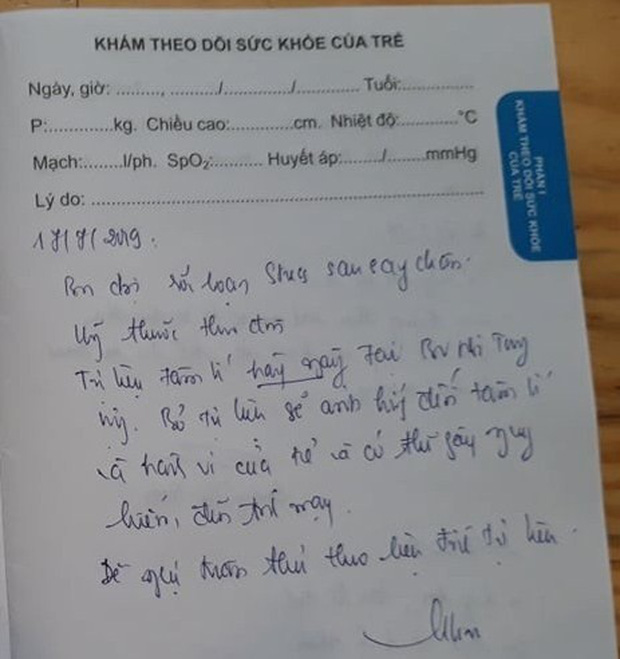 KHÁM THEO DÕI SỨC KHỎE CỦA TRẺ
Ngày, giờ: ........., ........./............/............ Tuổi:...............
P:.............kg. Chiều cao:.............cm. Nhiệt độ:............°C
Mạch:.......l/ph. SpO2:........... Huyết áp:......./.......mmHg
Lý do: ..........................................................................
PHẦN I
KHÁM THEO DÕI SỨC KHỎE
CỦA TRẺ
17/7/2019.
rối loạn Stress sau sang chấn.
Uống thuốc theo đơn
Trị liệu tâm lí hàng ngày tại BV Nhi Trung
ương. Bỏ trị liệu sẽ ảnh hưởng đến tâm lí
và hành vi của trẻ và có thể gây nguy
hiểm đến
Đề nghị tuân thủ theo liệu trình trị liệu.